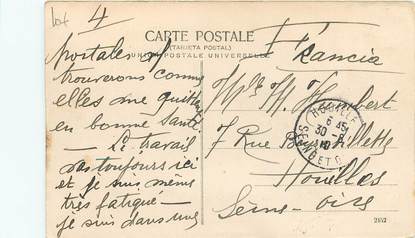 4
CARTE POSTALE
(TARJETA POSTAL)
UNION POSTALE UNIVERSELLE
postales
trouverons comme
elles me quittent
en bonne santé.
travail
pas toujours ici
et je suis même
très fatigué —
je suis dans une
Francia
Humbert
7 Rue
Houilles
Seine - Oise
HOUILLES
6 45
30 - 8
10
SEINE ET O.
2152